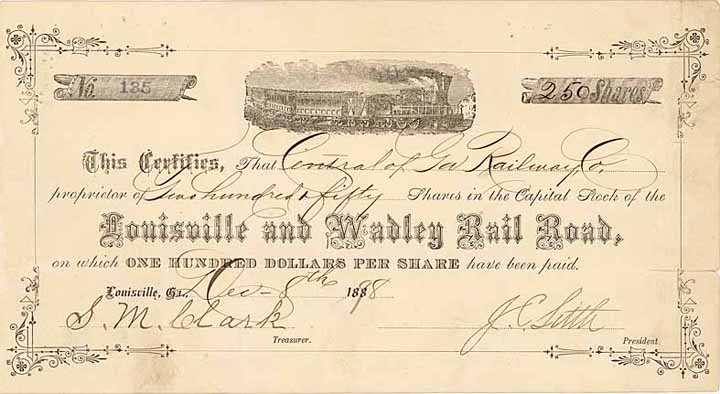 No. 135
250 Shares
This Certifies, That Central of Ga Railway Co.
proprietor of Two hundred & fifty Shares in the Capital Stock of the
Louisville and Wadley Rail Road,
on which ONE HUNDRED DOLLARS PER SHARE have been paid.
Louisville, Ga. Dec - 8th 1898
S. M. Clark J. C.
Treasurer. President.